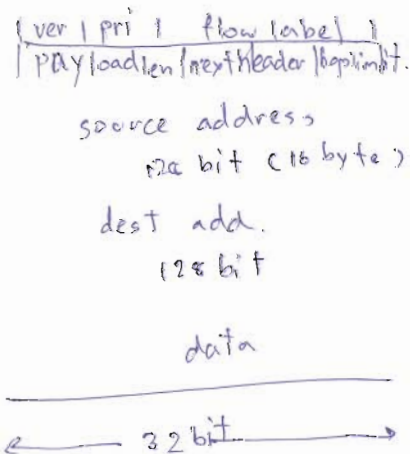 | ver | pri | flow label |
| payload len | next header | hop limit.
source address
128 bit (16 byte)
dest add.
128 bit
data
32 bit